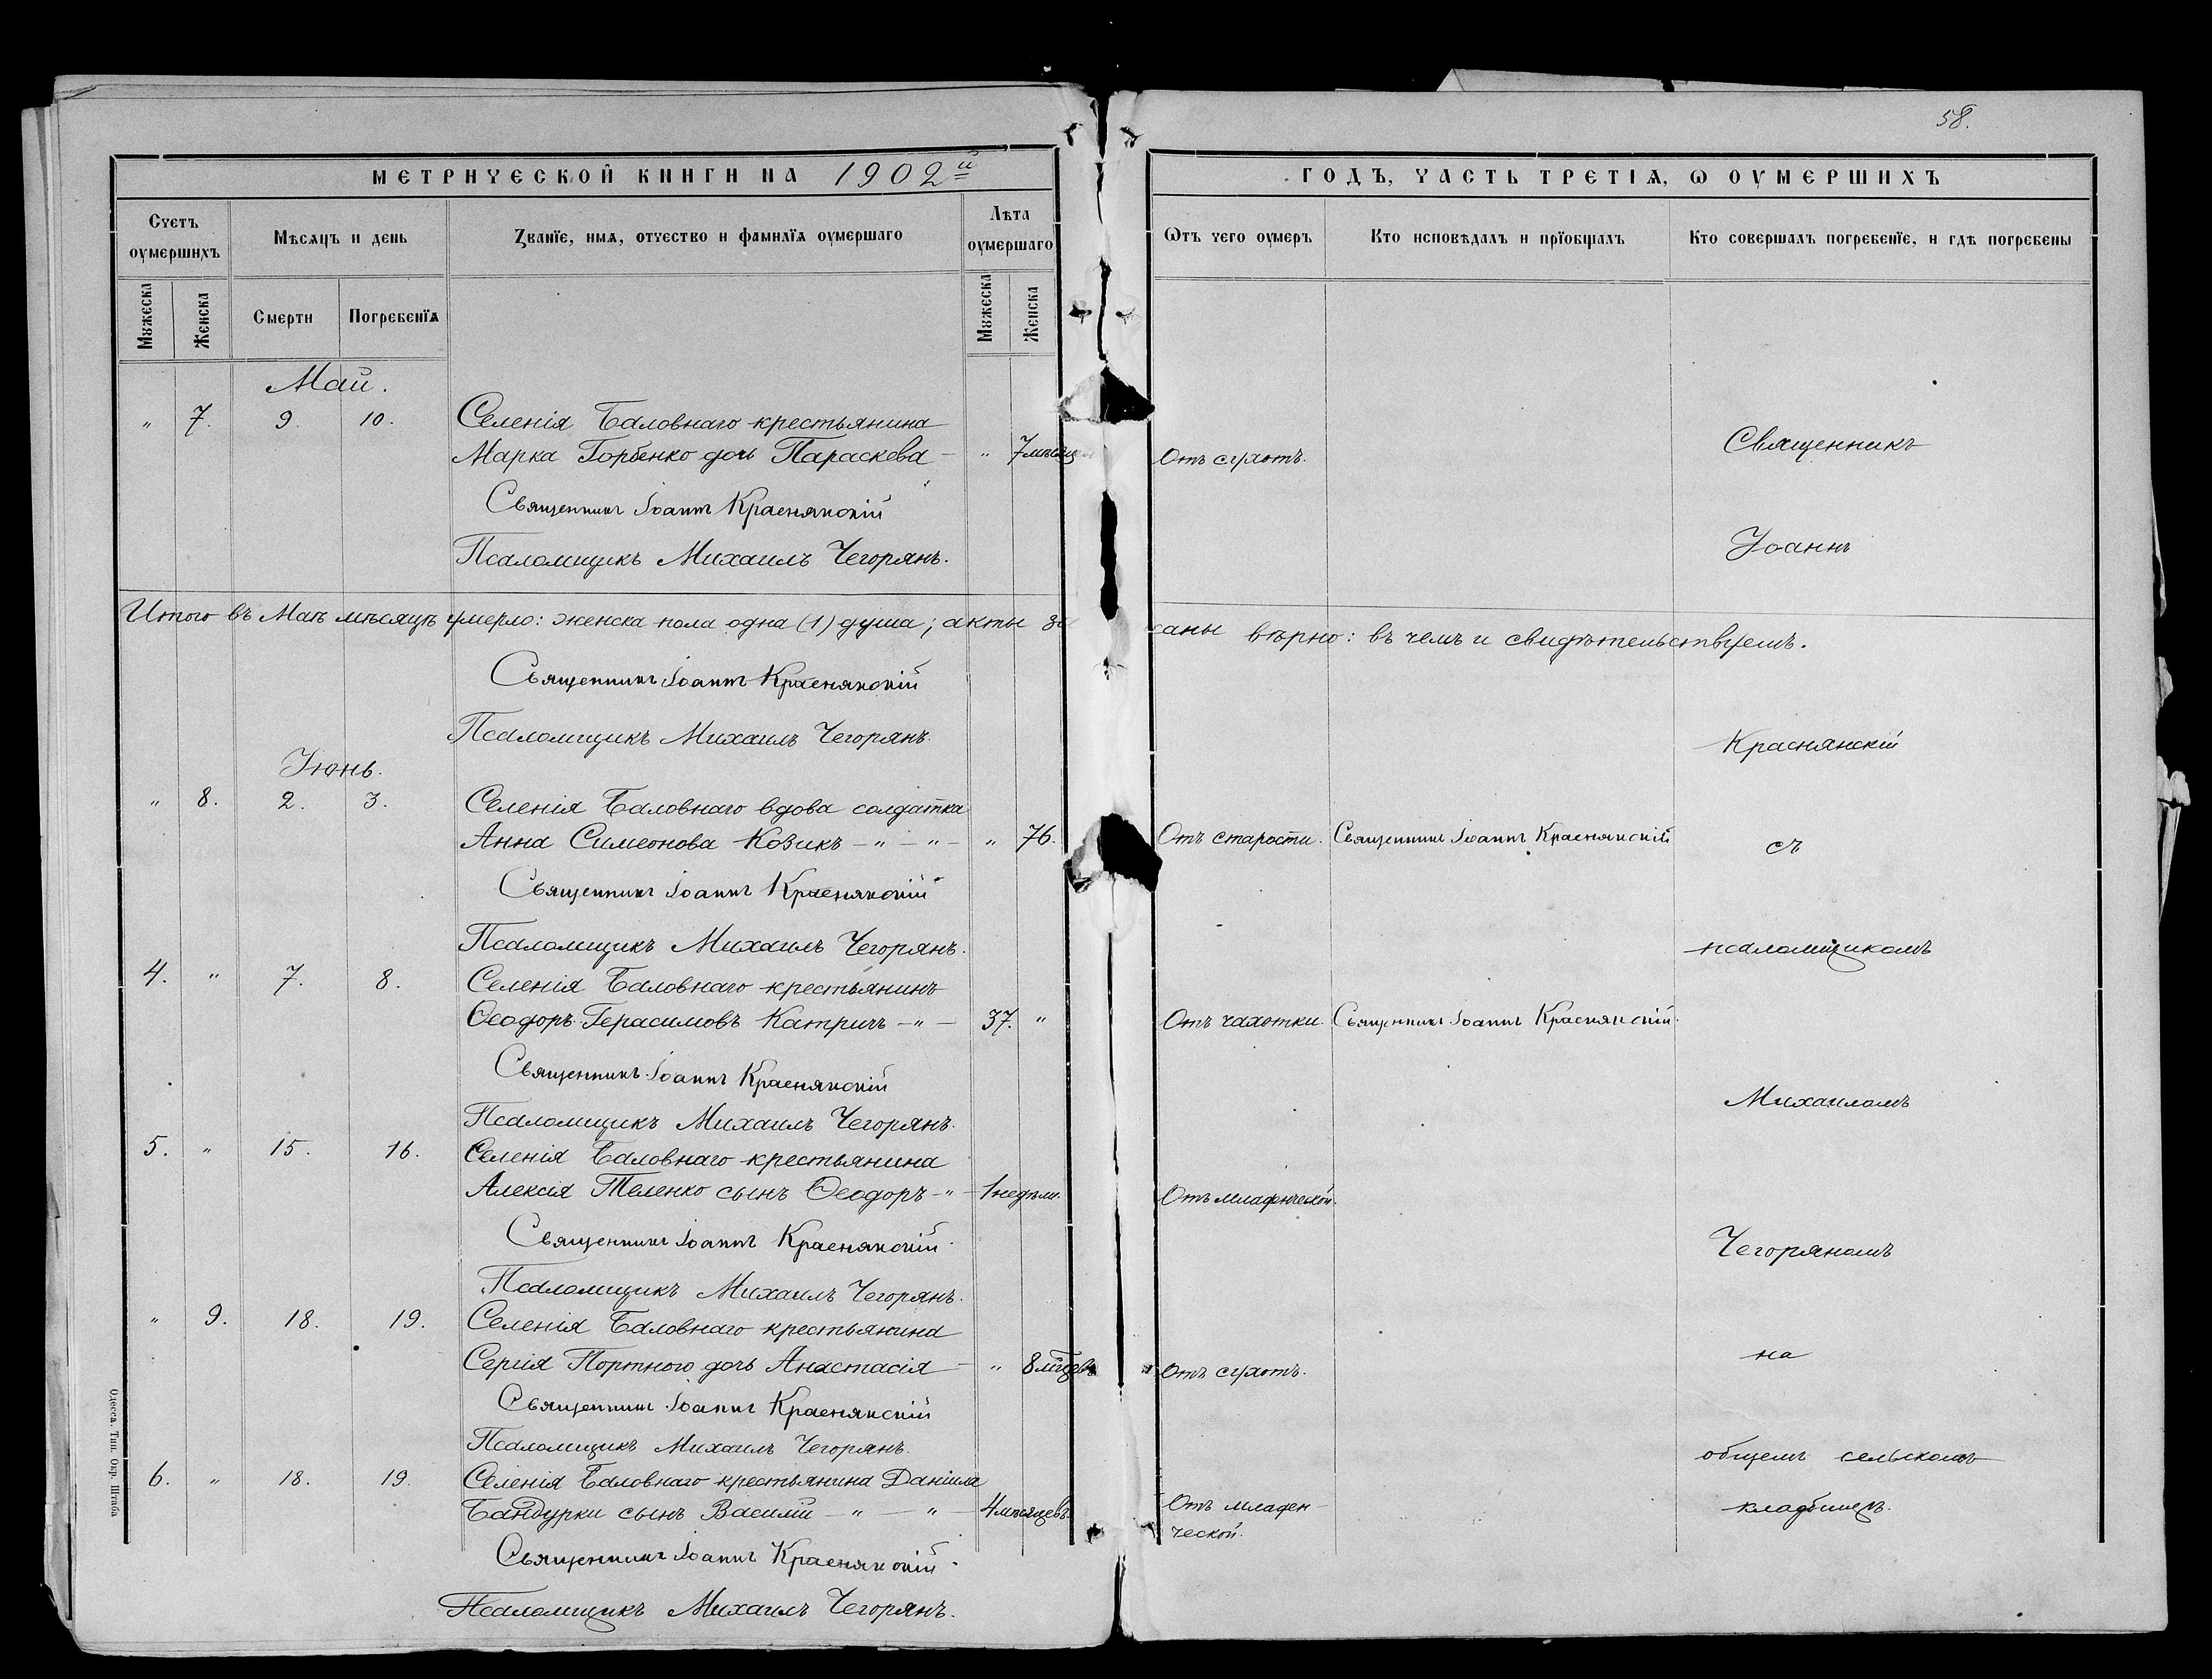 58.
МЕТРИЧЕСКОЙ КНИГИ НА 1902й
ГОДЪ, ЧАСТЬ ТРЕТІЯ, Ѡ ОУМЕРШИХЪ
Счетъ оумершихъ
Мѣсяцъ и день
Званїе, имя, отчество и фамилїя оумершаго
Лѣта оумершаго
Ѿтъ чего оумеръ
Кто исповѣдалъ и прїобщалъ
Кто совершалъ погребенїе, и гдѣ погребены
Мужеска
Женска
Смерти
Погребенїя
Мужеска
Женска
Май.
" 7. 9. 10. Селенія Баловнаго крестьянина
Марка Горбенко дочь Параскева – " 7 мѣсяцевъ Отъ сухотъ.
Священникъ
Священникъ Іоаннъ Краснянскій
Псаломщикъ Михаилъ Чегорянъ.
Іоаннъ
Итого въ Маѣ мѣсяцѣ умерло: женска пола одна (1) душа; акты за
саны вѣрно: въ чемъ и свидѣтельствуемъ.
Священникъ Іоаннъ Краснянскій
Псаломщикъ Михаилъ Чегорянъ.
Краснянскій
Іюнь.
" 8. 2. 3. Селенія Баловнаго вдова солдатка
Анна Симеонова Козикъ – " – " – " 76. Отъ старости. Священникъ Іоаннъ Краснянскій
съ
Священникъ Іоаннъ Краснянскій
Псаломщикъ Михаилъ Чегорянъ.
псаломщикомъ
4. " 7. 8. Селенія Баловнаго крестьянинъ
Ѳеодоръ Герасимовъ Катричъ – " – 37. " Отъ чахотки. Священникъ Іоаннъ Краснянскій.
Священникъ Іоаннъ Краснянскій
Михаиломъ
Псаломщикъ Михаилъ Чегорянъ.
5. " 15. 16. Селенія Баловнаго крестьянина
Алексія Теленко сынъ Ѳеодоръ – " – 1 недѣли. Отъ младенческой.
Священникъ Іоаннъ Краснянскій
Чегоряномъ
Псаломщикъ Михаилъ Чегорянъ.
" 9. 18. 19. Селенія Баловнаго крестьянина
Сергія Портного дочь Анастасія – " 8 мѣцевъ Отъ сухотъ.
на
Священникъ Іоаннъ Краснянскій
Псаломщикъ Михаилъ Чегорянъ.
общемъ сельскомъ
6. " 18. 19. Селенія Баловнаго крестьянина Даніила
Бандурки сынъ Василій – " – " – 4 мѣсяцевъ. Отъ младен-
ческой.
кладбищѣ.
Священникъ Іоаннъ Краснянскій
Псаломщикъ Михаилъ Чегорянъ.
Одесса. Тип. Окр. Штаба